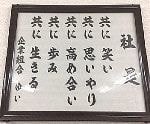 社是
共に 笑い
共に 思いやり
共に 高め合い
共に 歩み
共に 生きる
企業組合 ゆい